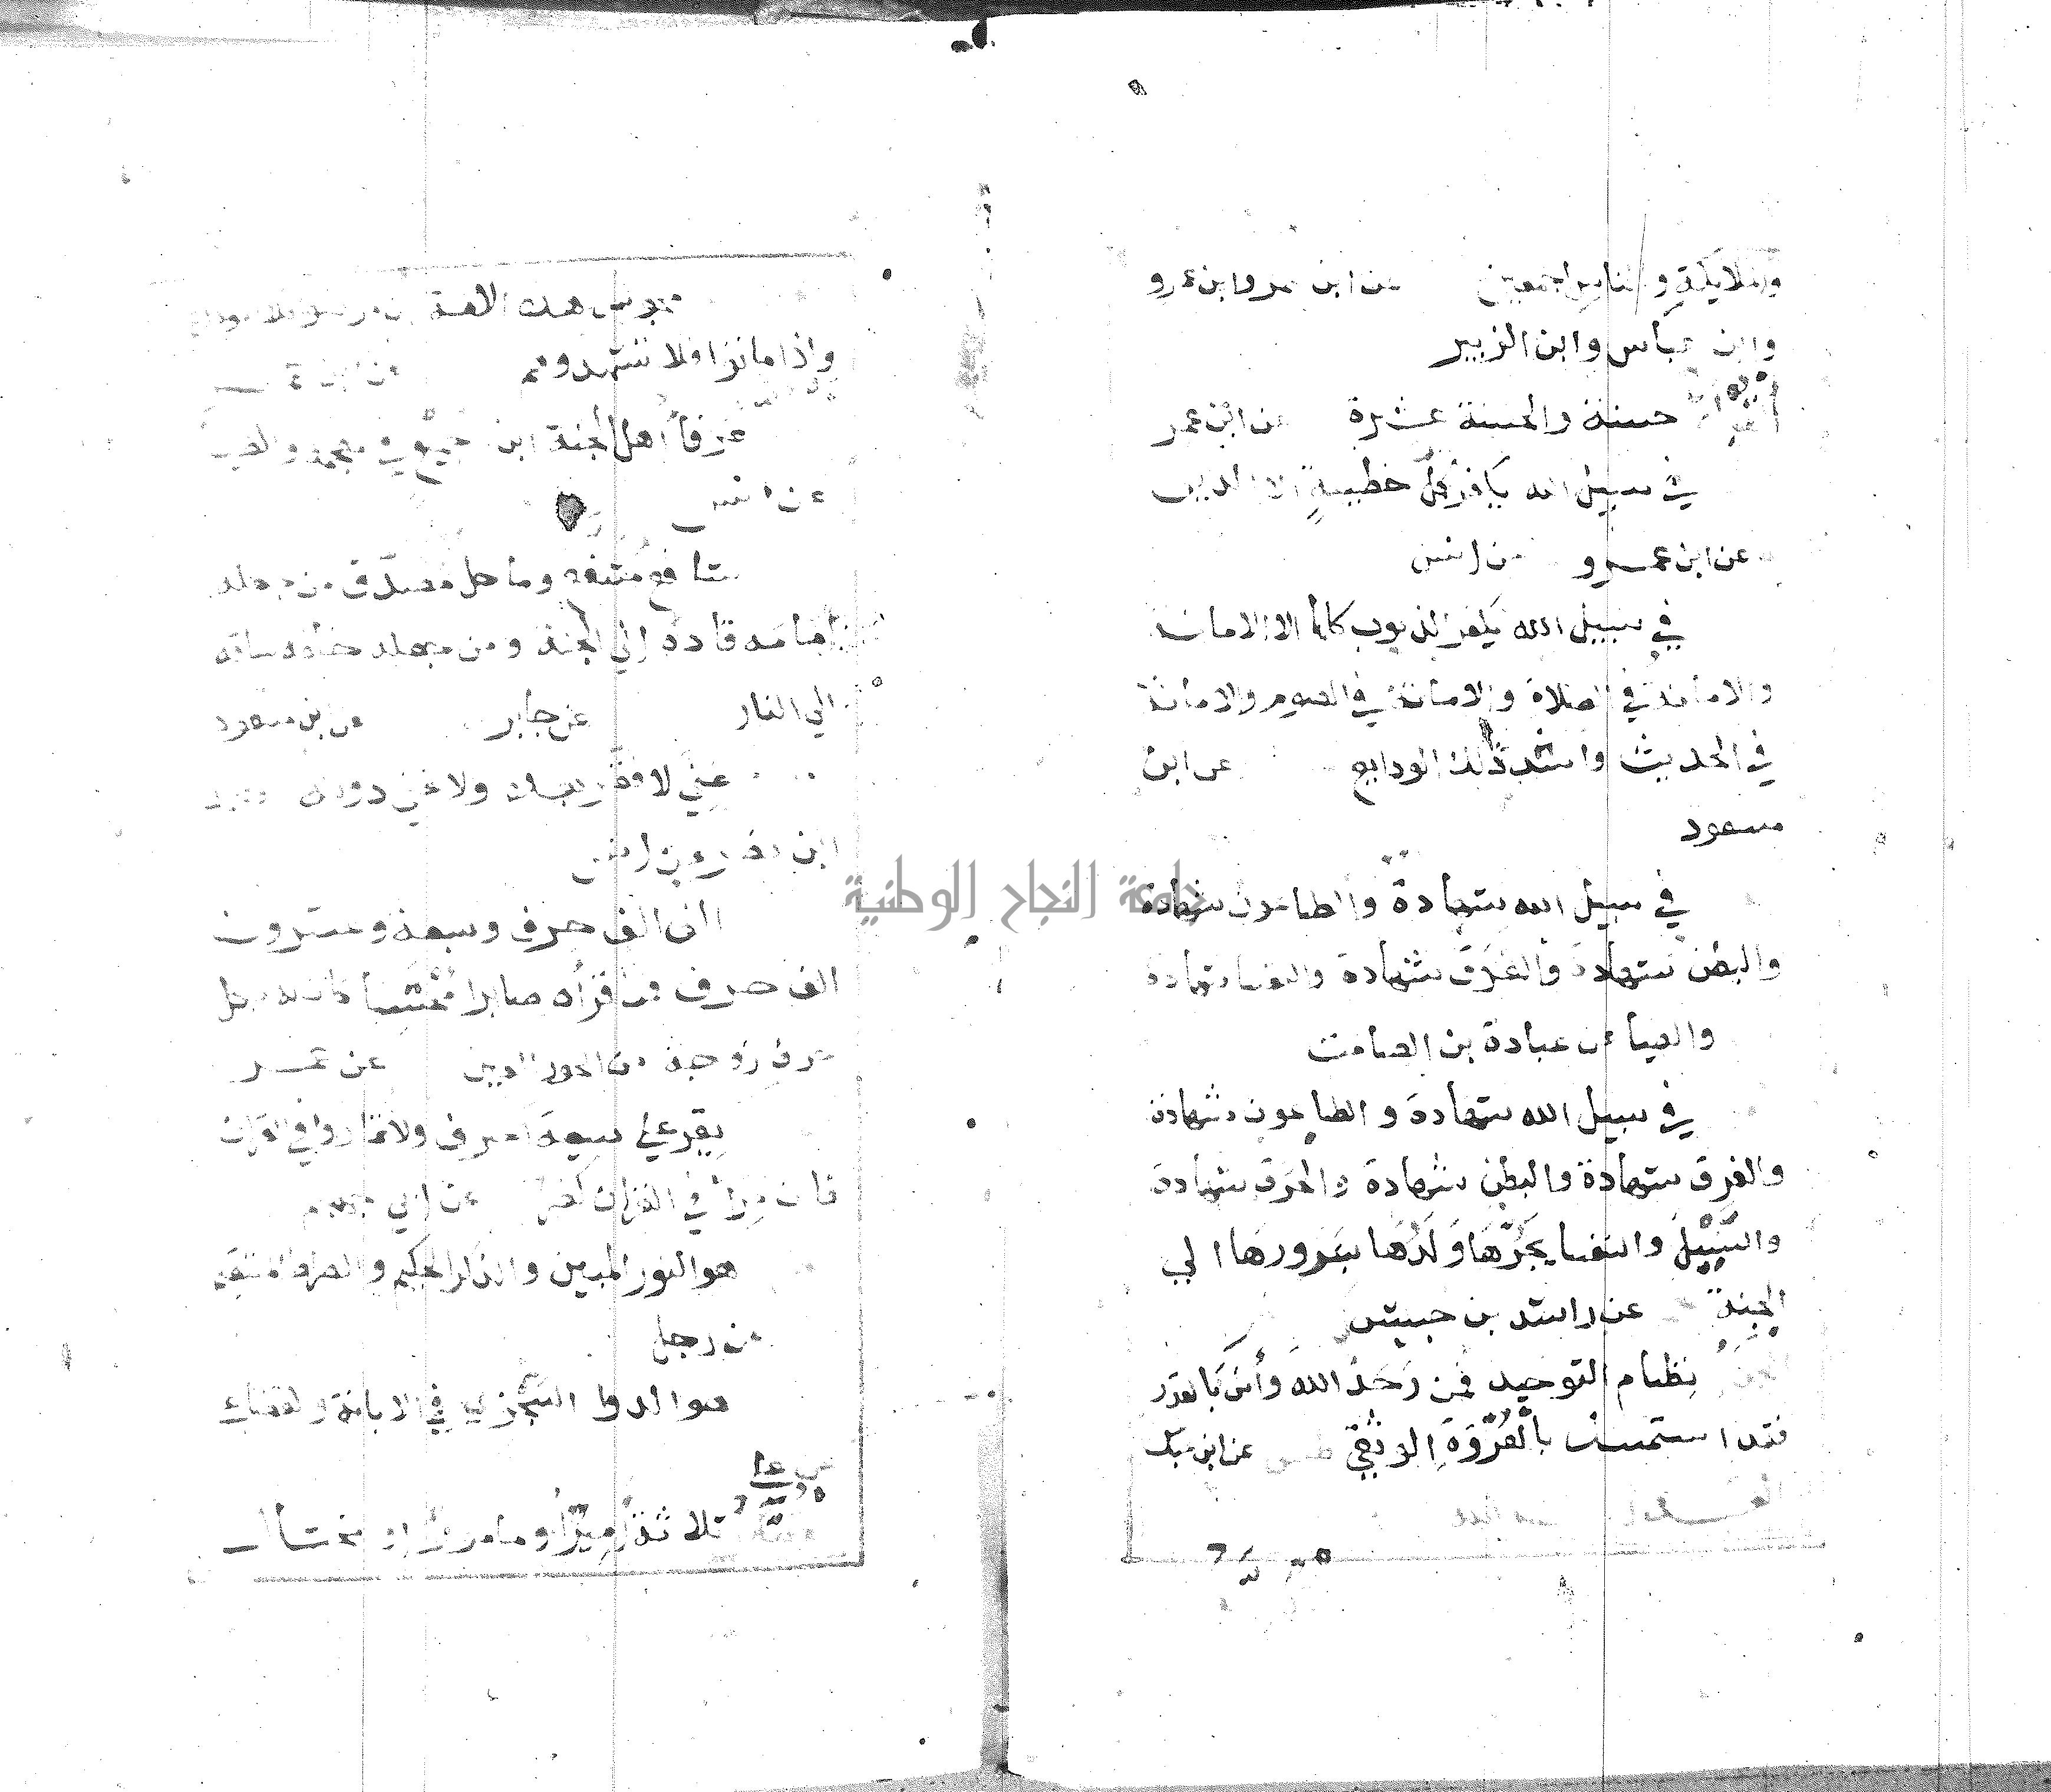 والملايكة والناس اجمعين عن ابن عمر وابن عمرو
وابن عباس وابن الزبير
حسنة والحسنة عشرة عن ابن عمر
في سبيل الله يكفر كل خطيية الا الدين
عن ابن عمرو عن انس
في سبيل الله يكفر الذنوب كلها الا الامانة
والامانة في الصلاة والامانة في الصوم والامانة
في الحديث واشد ذلك الودايع عن ابن
مسعود
في سبيل الله شهادة والطاعون شهادة
والبطن شهادة والغرق شهادة والنفسا شهادة
عن عبادة بن الصامت
في سبيل الله شهادة والطاعون شهادة
والغرق شهادة والبطن شهادة والحرق شهادة
والسيل والنفسا يجرها ولدها بسررها الي
الجنة عن راشد بن حبيش
نظام التوحيد فمن وحد الله وآمن بالقدر
فقد استمسك بالعروة الوثقي عن ابن عباس
مجوس هذه الامة
واذا ماتوا فلا تشهدوهم
عرفا اهل الجنة ابن جميع في معجمه
عن انس
شافع مشفع وماحل مصدق من جعله
امامه قاده الي الجنة ومن جعله خلفه ساقه
الي النار عن جابر عن ابن مسعود
غني لا فقر بعده ولا غني دونه
ابن نصر عن انس
الف الف حرف وسبعة وعشرون
الف حرف فمن قراه صابرا محتسبا كان له بكل
حرف زوجة من الحور العين عن عمر
يقرا علي سبعة احرف ولا تماروا في القران
فان مراء في القران كفر عن ابي جهيم
هو النور المبين والذكر الحكيم والصراط المستقيم
عن رجل
هو الدوا السجزي في الابانة والقضاعي
عن علي
ثلاثة
جامعة النجاح الوطنية